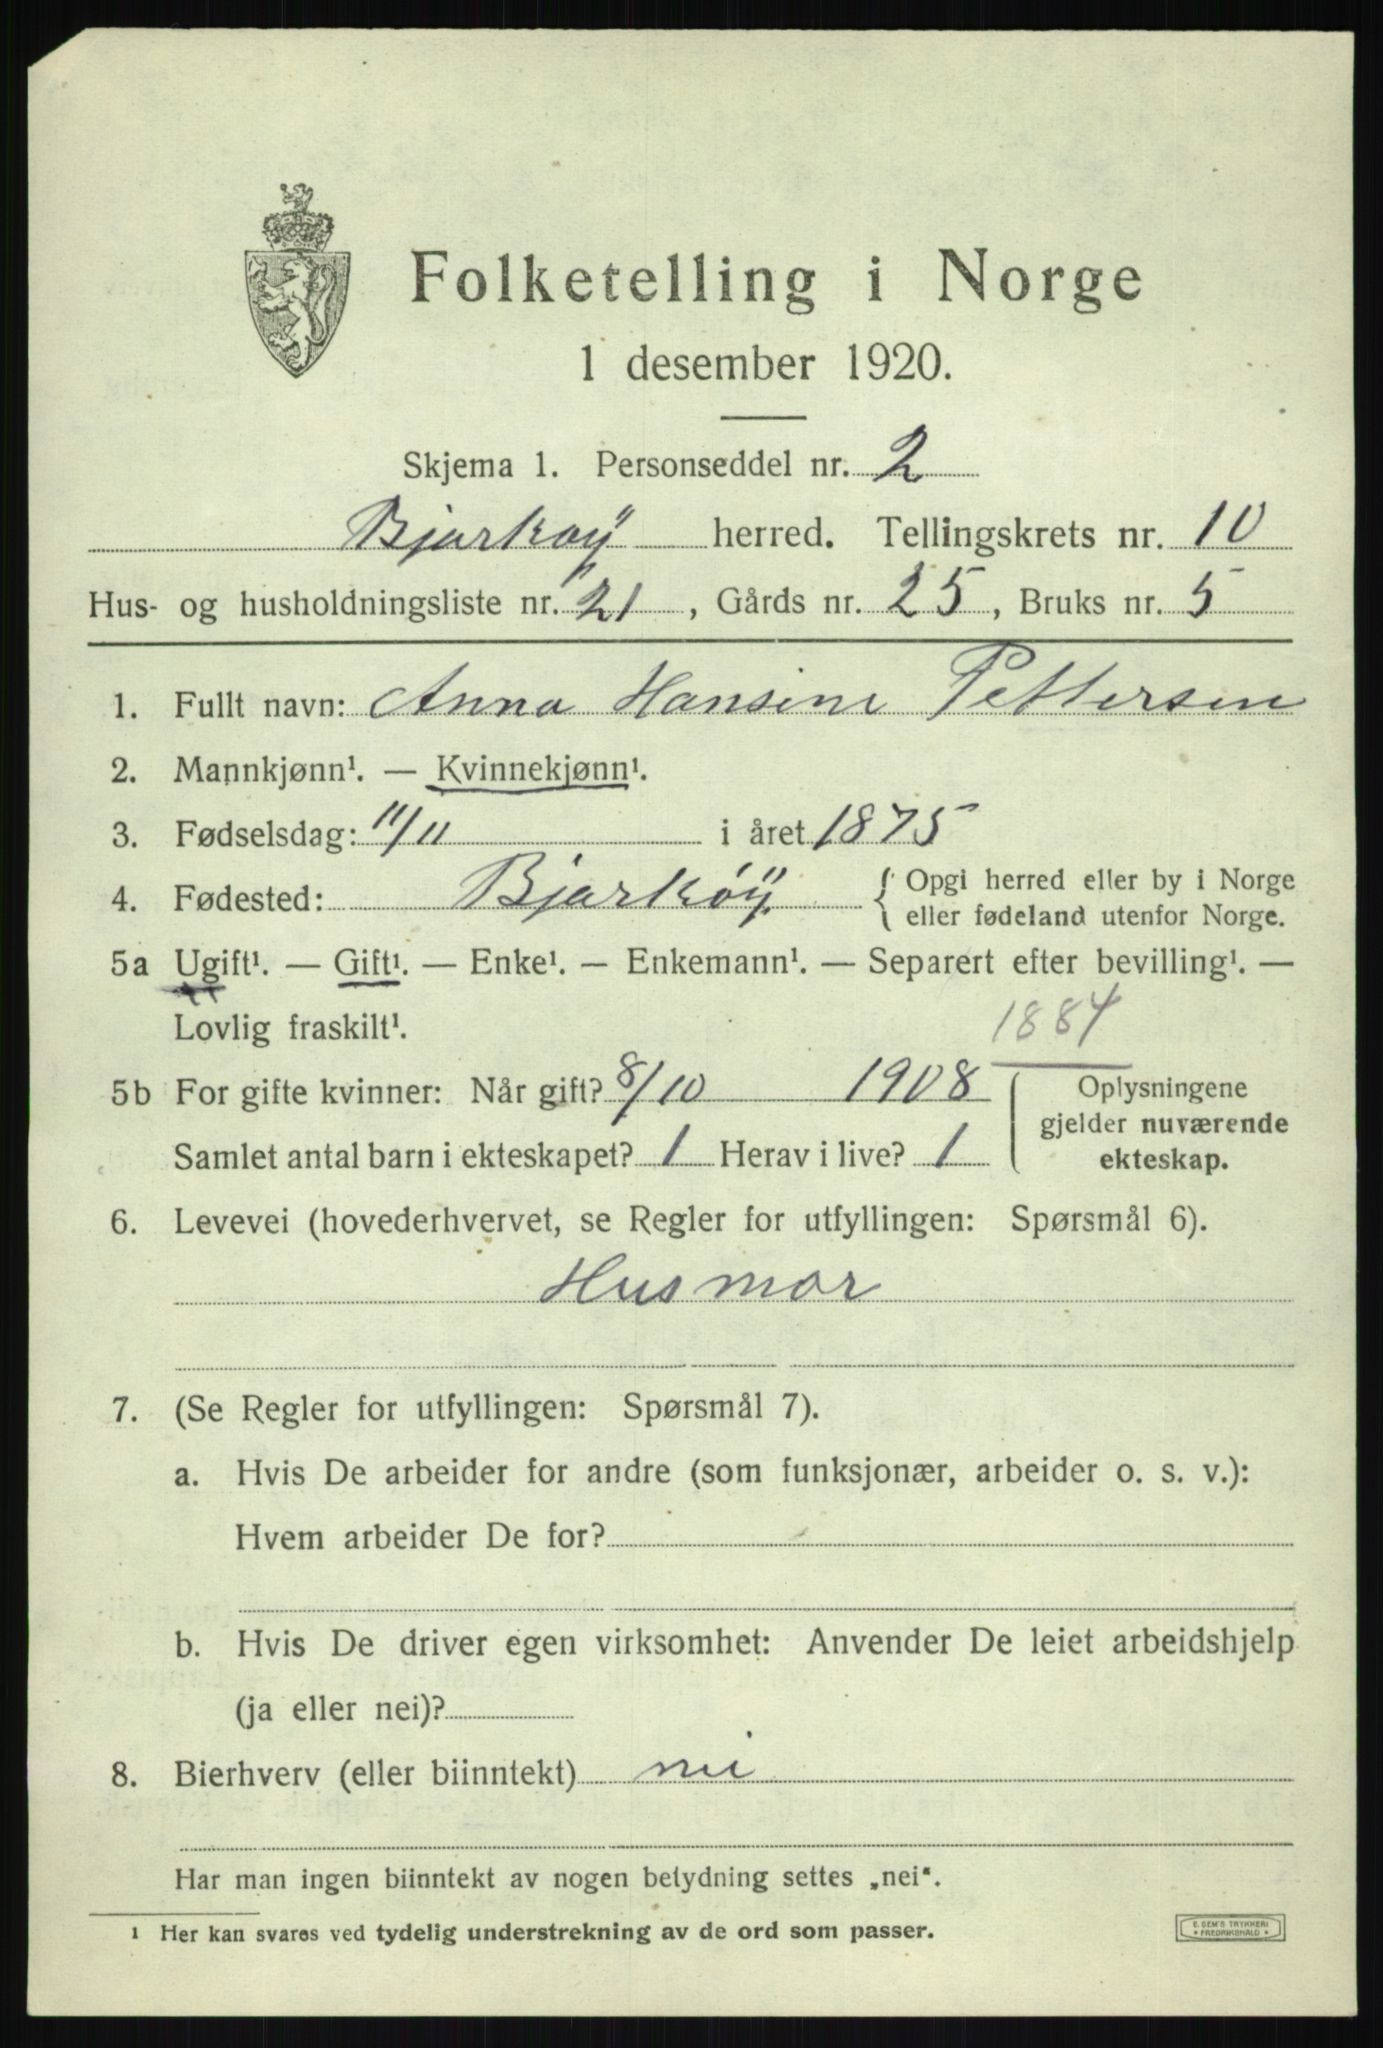 Folketelling i Norge
1 desember 1920.
Skjema 1. Personseddel nr. 2
Bjarkøy herred. Tellingskrets nr. 10
Hus- og husholdningsliste nr. 21, Gårds nr. 25, Bruks nr. 5
1. Fullt navn: Anna Hansine Pettersen
2. Mannkjønn¹. — Kvinnekjønn¹.
3. Fødselsdag: 11/11 i året 1875
4. Fødested: Bjarkøy. { Opgi herred eller by i Norge
eller fødeland utenfor Norge.
5a Ugift¹. — Gift¹. — Enke¹. — Enkemann¹. — Separert efter bevilling¹. —
Lovlig fraskilt¹.
1884
5b For gifte kvinner: Når gift? 8/10 1908
Samlet antal barn i ekteskapet? 1 Herav i live? 1
Oplysningene
gjelder nuværende
ekteskap.
6. Levevei (hovederhvervet, se Regler for utfyllingen: Spørsmål 6).
Husmor
7. (Se Regler for utfyllingen: Spørsmål 7).
a. Hvis De arbeider for andre (som funksjonær, arbeider o. s. v.):
Hvem arbeider De for?
b. Hvis De driver egen virksomhet: Anvender De leiet arbeidshjelp
(ja eller nei)?
8. Bierhverv (eller biinntekt) nei
Har man ingen biinntekt av nogen betydning settes „nei“.
¹ Her kan svares ved tydelig understrekning av de ord som passer.
E. SEM'S TRYKKERI
* FREDRIKSHALD *